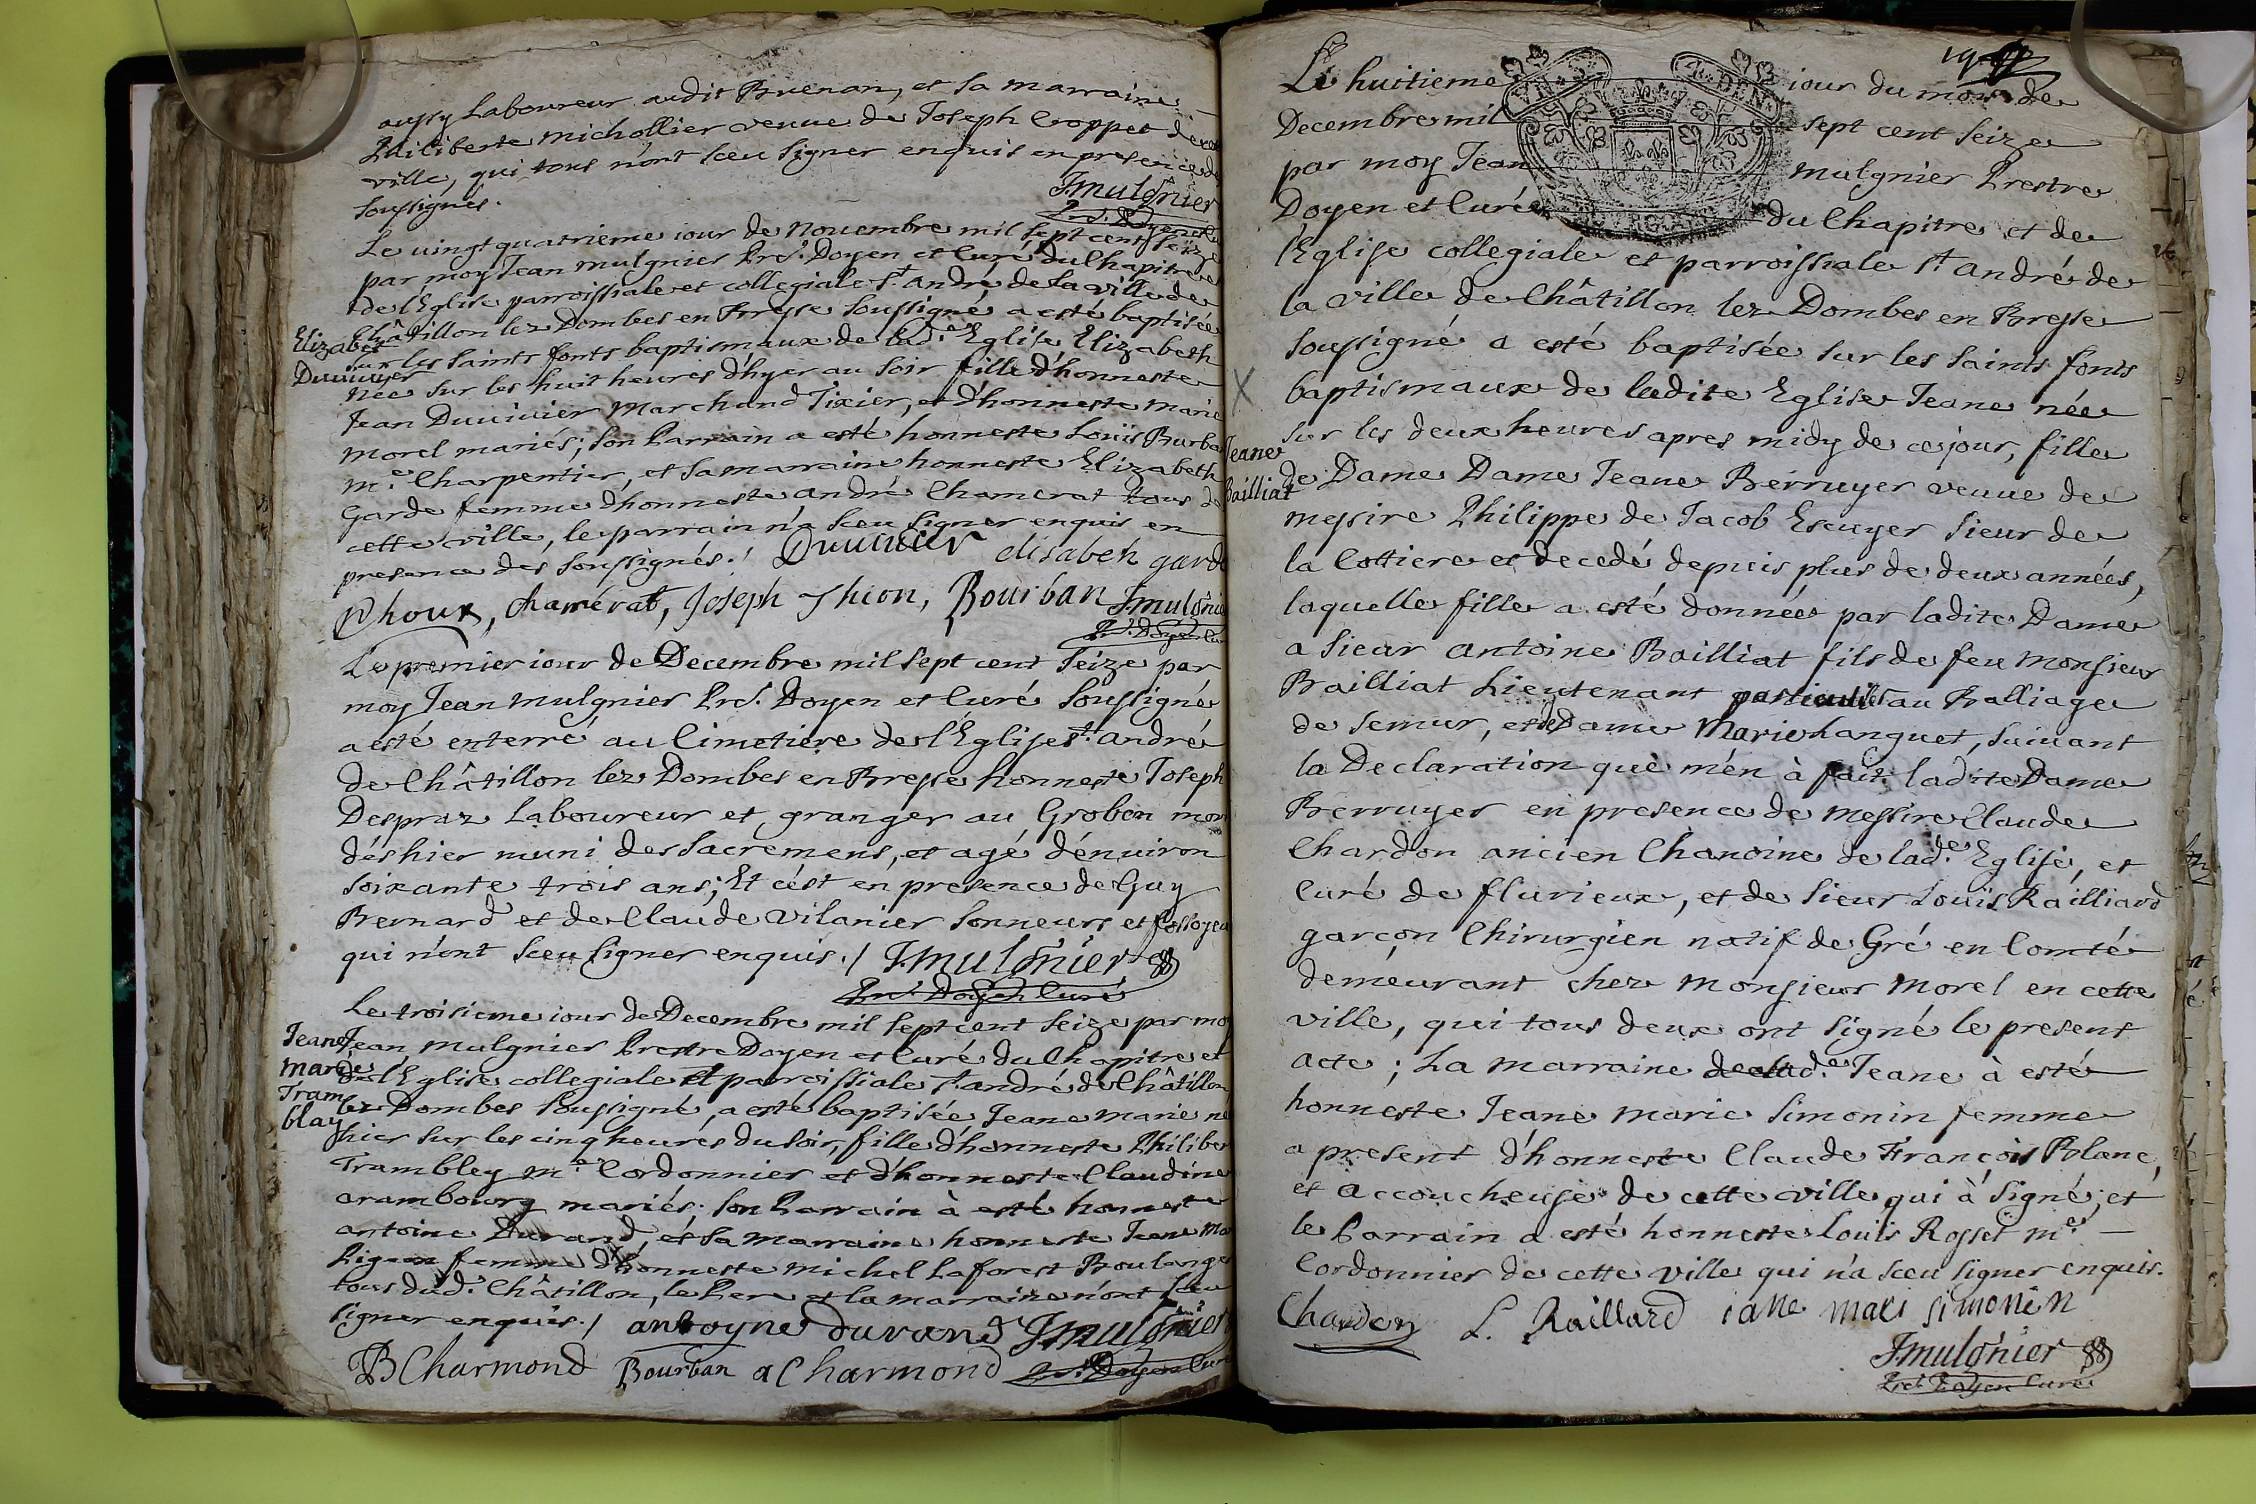 aussy Laboureur audit Buenan, et sa marraine
Philiberte michollier veuve de Joseph Croppet de cette
ville, qui tous n'ont sceu signer enquis en presence des
soussignés.
Jmulgnier
Pre. Doyen Curé
Le vingt quatrieme iour de Novembre mil sept cent seize
par moy Jean mulgnier Pre. Doyen et Curé du Chapitre et
de l'Eglise parroissiale et collegiale St. André de la ville de
Châtillon lez Dombes en Bresse soussigné a esté baptisée
Elizabet
Duvivier
sur les saints fonts baptismaux de lad.e Eglise Elizabeth
née sur les huit heures d'hyer au soir fille d'honneste
Jean Duvivier Marchand Tixier, et d'honneste Marie
morel mariés; son Parrain a esté honneste Loüis Burban
m.e Charpentier, et sa marraine honneste Elizabeth
Garde femme d'honneste André Chamerat tous de
cette ville, le parrain n'a sceu signer enquis en
presence des soussignés./ Duvivier elisabeh garde
Phoux, Chamérat, Joseph Thion, Bourban Jmulgnier
Pre. Doyen Curé
Le premier iour de Decembre mil sept cent seize par
moy Jean mulgnier Pre. Doyen et Curé soussigné
a esté enterré au Cimetiere de l'Eglise St. André
de Châtillon lez Dombes en Bresse honneste Joseph
Despraz Laboureur et granger au Groben mort
dés hier muni des sacremens, et agé d'enuiron
soixante trois ans; Et c'est en presence de Guy
Bernard et de Claude Vilanier sonneurs et fossoyeurs
qui n'ont sceu signer enquis./ Jmulgnier
Pre. Doyen Curé
Le troisieme iour de Decembre mil sept cent seize par moy
Jeane
marie
Tram
blay
Jean mulgnier Prestre Doyen et Curé du Chapitre et
de l'Eglise collegiale et parroissiale St. André de Châtillon
lez Dombes soussigné, a esté baptisée Jeane Marie née
hier sur les cinq heures du soir, fille d'honneste Philibert
Trambley m.e Cordonnier et d'honneste Claudine
arambourg mariés. son Parrain à esté honneste
antoine Durand, et sa marraine honneste Jeane Marie
Pigeon femme d'honneste Michel Laforest Boulanger
tous dud. Châtillon, le Pere et la marraine n'ont sceu
signer enquis./ antoyne durand Jmulgnier
BCharmond Bourban a Charmond Pre. Doyen Curé
Le huitieme iour du mois de
Decembre mil sept cent seize
par moy Jean mulgnier Prestre
Doyen et Curé du Chapitre et de
l'Eglise collegiale et parroissiale St. André de
la ville de Châtillon lez Dombes en Bresse
soussigné a esté baptisée sur les saints fonts
baptismaux de ladite Eglise Jeane née
Jeane
Bailliat
sur les deux heures apres midy de ce jour, fille
de Dame Dame Jeane Berruyer veuue de
messire Philippe de Jacob Escuyer Sieur de
la Cottiere et decedé depuis plus de deux années,
laquelle fille a esté donnée par ladite Dame
a sieur Antoine Bailliat fils de feu Monsieur
Bailliat Lieutenant particulier au Balliage
de semur, et de Dame Marie hanguet, suiuant
la Declaration que m'en à fait ladite Dame
Berruyer en presence de messire Claude
Chardon ancien Chanoine de lad.de Eglise, et
Curé de flurieux, et de sieur Louis Railliard
garçon Chirurgien natif de Gré en Comté
deméurant chez Monsieur Morel en cette
ville, qui tous deux ont signé le present
acte; La marraine de lad.e Jeane à esté
honneste Jeane marie Simonin femme
a present d'honneste Claude François Blanc,
et accoucheuse de cette ville qui à signé, et
le Parrain a esté honneste Louis Rosset m.e
Cordonnier de cette ville qui n'a sceu signer enquis.
Chardon L. Raillard iane mari simonin
Jmulgnier
Pre. Doyen Curé